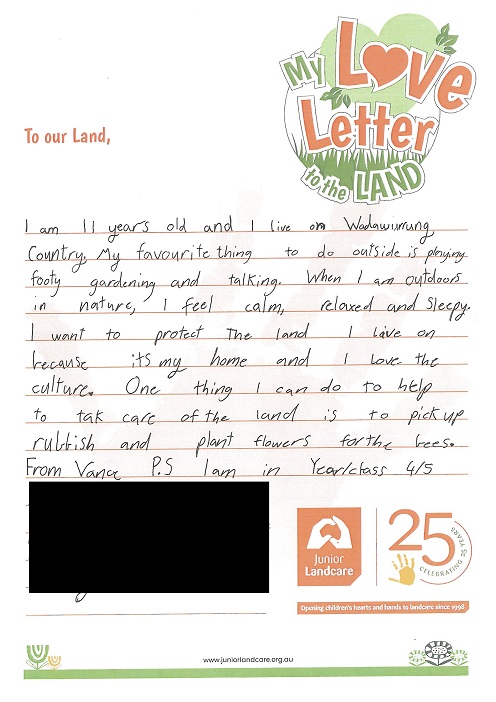 My Love
Letter
to the LAND
To our Land,
I am 11 years old and I live on Wadawurrung
Country. My favourite thing to do outside is playing
footy gardening and talking. When I am outdoors
in nature, I feel calm, relaxed and sleepy.
I want to protect The land I live on
because its my home and I love the
culture. One thing I can do to help
to tak care of the land is to pick up
rubbish and plant flowers for the bees.
From Vana P.S I am in Year/class 4/5
Junior
Landcare
25
CELEBRATING 25 YEARS
Opening children's hearts and hands to landcare since 1998
www.juniorlandcare.org.au